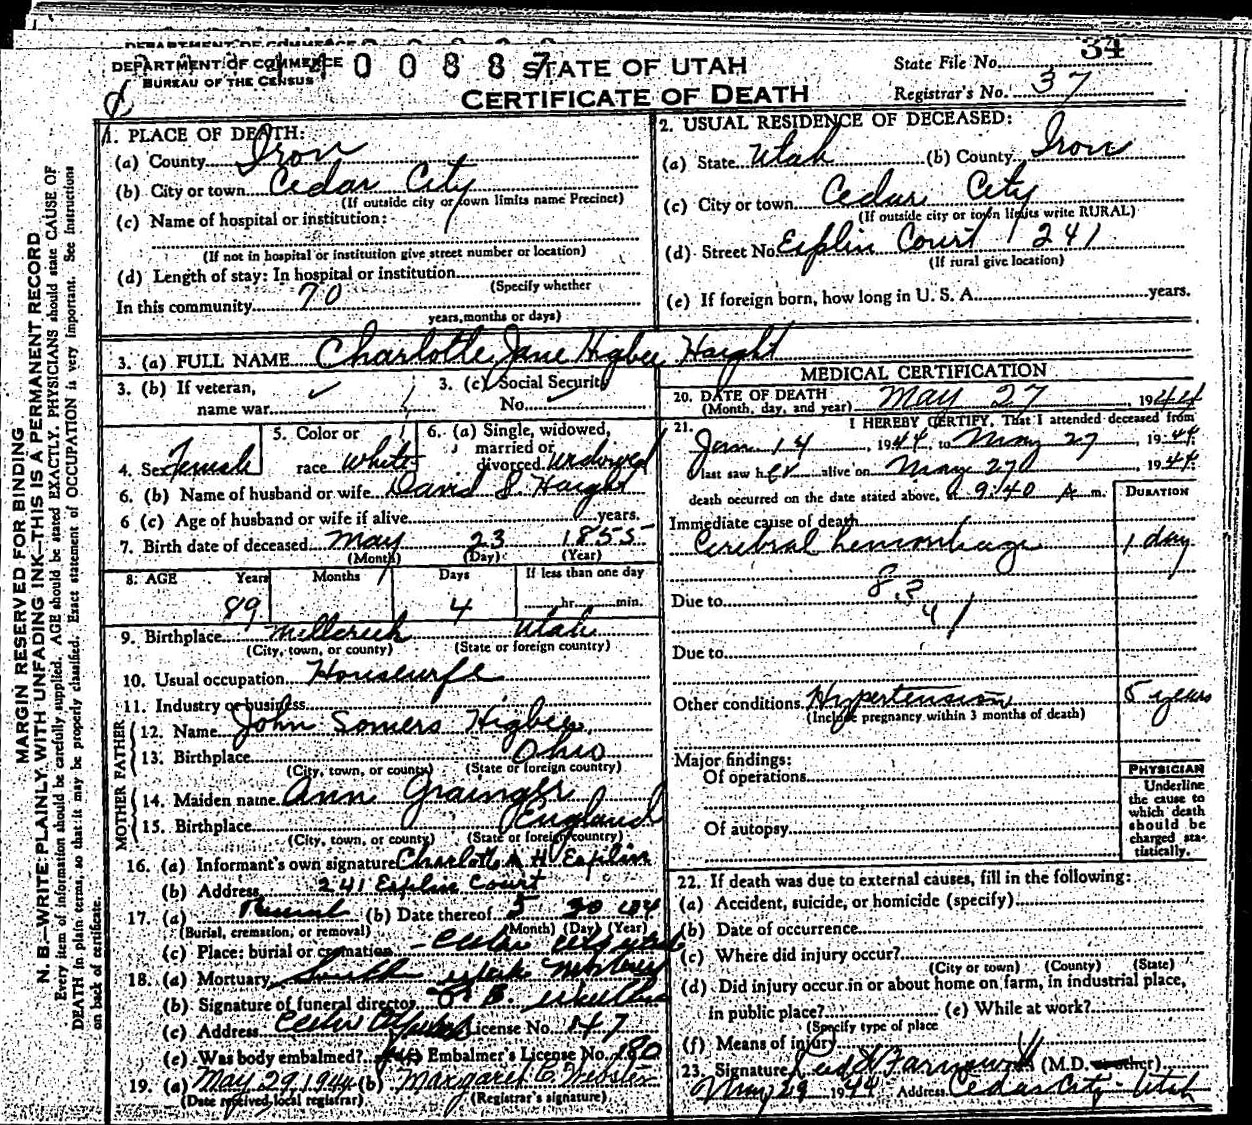 DEPARTMENT OF COMMERCE
BUREAU OF THE CENSUS
0 0 8 8 7
STATE OF UTAH
CERTIFICATE OF DEATH
State File No. 34
Registrar's No. 37
MARGIN RESERVED FOR BINDING
N. B.—WRITE PLAINLY, WITH UNFADING INK—THIS IS A PERMANENT RECORD
Every item of information should be carefully supplied. AGE should be stated EXACTLY. PHYSICIANS should state CAUSE OF
DEATH in plain terms, so that it may be properly classified. Exact statement of OCCUPATION is very important. See Instructions
on back of certificate.
1. PLACE OF DEATH:
(a) County Iron
(b) City or town Cedar City
(If outside city or town limits name Precinct)
(c) Name of hospital or institution:
(If not in hospital or institution give street number or location)
(d) Length of stay: In hospital or institution
(Specify whether
In this community 70
years, months or days)
2. USUAL RESIDENCE OF DECEASED:
(a) State Utah (b) County Iron
(c) City or town Cedar City
(If outside city or town limits write RURAL)
(d) Street No. Esplin Court 241
(If rural give location)
(e) If foreign born, how long in U. S. A. years.
3. (a) FULL NAME Charlotte Jane Higbee Haight
3. (b) If veteran,
name war
3. (c) Social Security
No.
4. Sex Female
5. Color or
race White
6. (a) Single, widowed,
married or
divorced Widowed
6. (b) Name of husband or wife David S Haight
6 (c) Age of husband or wife if alive years.
7. Birth date of deceased May 23 1855
(Month) (Day) (Year)
8. AGE Years Months Days If less than one day
89 4 hr. min.
9. Birthplace Millcreek Utah
(City, town, or county) (State or foreign country)
10. Usual occupation Housewife
11. Industry or business
FATHER
12. Name John Somers Higbee
13. Birthplace Ohio
(City, town, or county) (State or foreign country)
MOTHER
14. Maiden name Ann Grainger
15. Birthplace England
(City, town, or county) (State or foreign country)
16. (a) Informant's own signature Charlotte H Esplin
(b) Address 241 Esplin Court
17. (a) (b) Date thereof 5 30
(Burial, cremation, or removal) (Month) (Day) (Year)
(c) Place: burial or cremation
18. (a) Mortuary
(b) Signature of funeral director
(c) Address License No. 147
(e) Was body embalmed? Embalmer's License No. 180
19. (a) May 29, 1944 (b) Margaret E. Webster
(Date received local registrar) (Registrar's signature)
MEDICAL CERTIFICATION
20. DATE OF DEATH
(Month, day, and year) May 27, 1944
21. I HEREBY CERTIFY, That I attended deceased from
Jan 14, 1944, to May 27, 1944
last saw her alive on May 27, 1944
death occurred on the date stated above, a 9:40 A. m.
DURATION
Immediate cause of death
Cerebral hemorrhage 1 day
83
Due to
Due to
Other conditions Hypertension 5 years
(Include pregnancy within 3 months of death)
Major findings:
Of operations
Of autopsy
PHYSICIAN
Underline
the cause to
which death
should be
charged sta-
tistically.
22. If death was due to external causes, fill in the following:
(a) Accident, suicide, or homicide (specify)
(b) Date of occurrence
(c) Where did injury occur?
(City or town) (County) (State)
(d) Did injury occur in or about home on farm, in industrial place,
in public place? (e) While at work?
(Specify type of place
(f) Means of injury
23. Signature (M.D. or other)
May 29 1944 Address Cedar City Utah